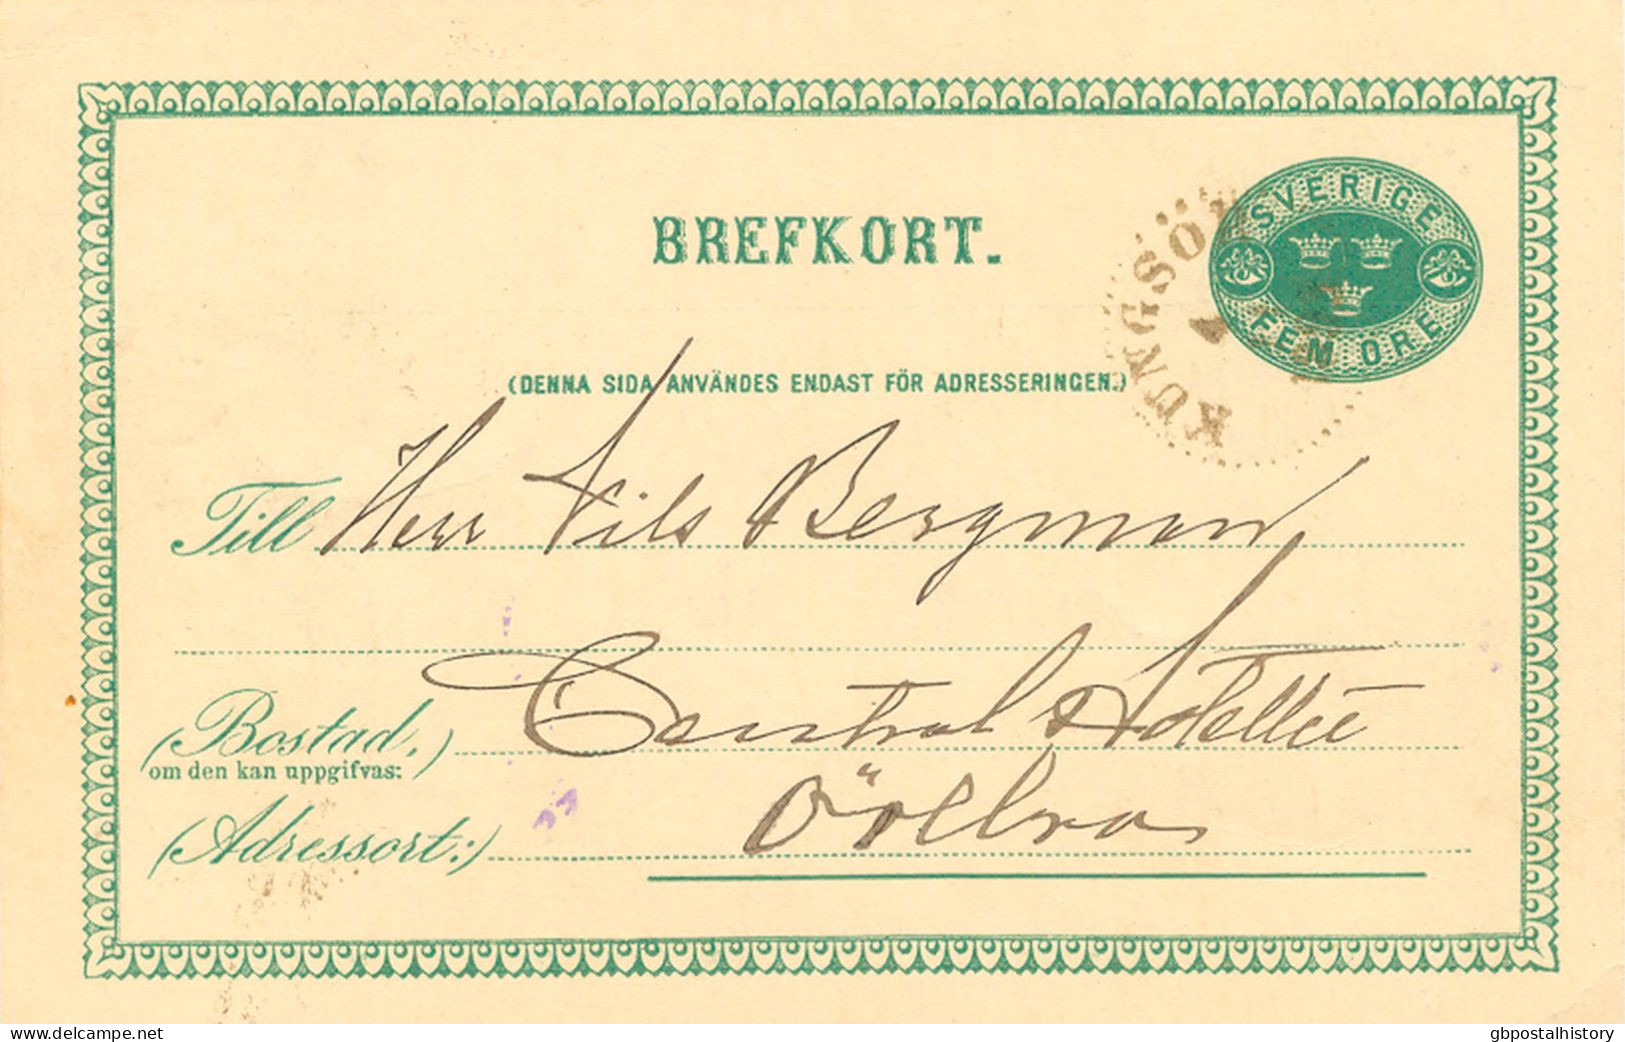 SVERIGE
FEM ÖRE
KUNGSÖR
BREFKORT.
(DENNA SIDA ANVÄNDES ENDAST FÖR ADRESSERINGEN.)
Till Herr Nils Bergman
(Bostad,) Central Hotellet
om den kan uppgifvas:
(Adressort:) Örebro
the-collectors.com
gbpostalhistory